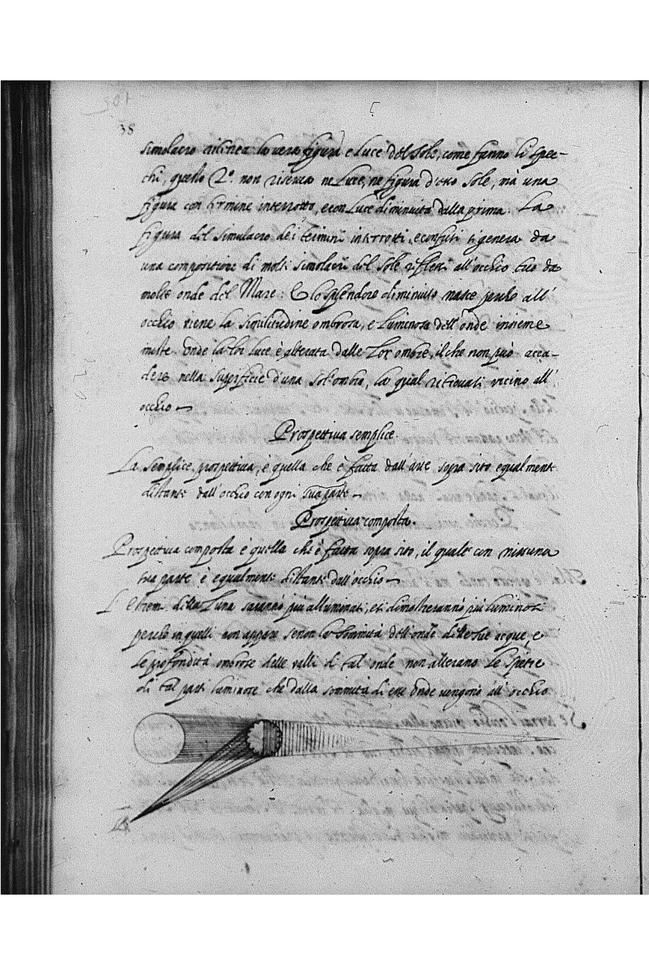 38
simolacro ritinea la vera figura e Luce del Sole, come fanno li spec-
chi, questo 2º. non riserva ne Luce, ne figura d'esso Sole, ma una
figura con termine interrotto, e con Luce diminuita dalla prima. La
figura del simulacro dei termini interrotti, e confusi si genera da
una compositione di molti simolacri del Sole riflessi all'occhio tuo da
molte onde del Mare: Et lo splendore diminuito nasce perche all'
occhio viene la similitudine ombrosa, e Luminosa dell'onde insieme
miste onde la lor luce è alterata dalle Lor ombre, il che non può acca-
dere nella superficie d'una sol'onda, la qual ritrouasi vicino all'
occhio
Prospettiua semplice
La semplice prospettiua, è quella che è fatta dall'arte sopra sito equalmente
distante dall'occhio con ogni sua parte
Prospettiua composta.
Prospetiua composta è quella che è fatta sopra sito, il quale con nissuna
sua parte è equalmente distante dall'occhio
L'estremi della Luna saranno più alluminati, et dimostreranno più luminosi
perche in quelli non appare se non le sommità dell'onde delle sue acque, e
le profondità ombrose delle valli di tal onde non alterano le spetie
di tal parti luminose che dalla sommità di esse onde vengono all'occhio